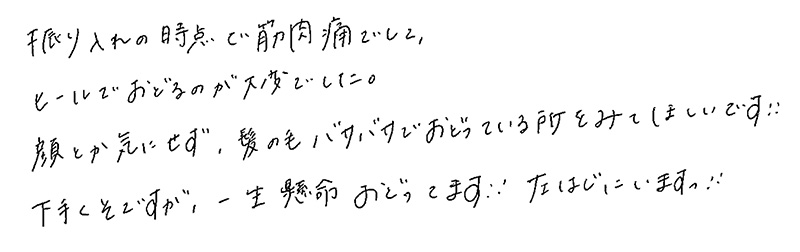 振り入れの時点で筋肉痛でして,
ヒールでおどるのが大変でした。
顔とか気にせず,髪の毛バサバサでおどっている所をみてほしいです!!
下手くそですが,一生懸命おどってます!! 左はじにいますっ!!